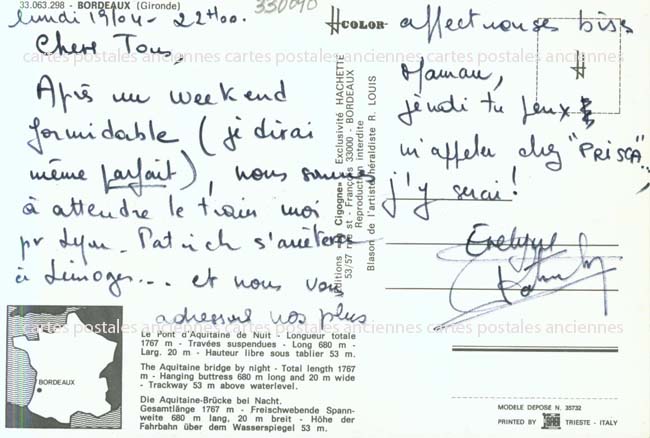 33.063.298 - BORDEAUX (Gironde)
330090
lundi 19/04 - 22H00.
Chers Tous,
Après un weekend
formidable (je dirai
même parfait), nous sommes
à attendre le train moi
pr Lyon. Patrick s'arrêtera
à Limoges... et nous vous
adressons nos plus
affectueuses bises
Maman,
jeudi tu peux
m'appeler chez "PRISCA",
j'y serai!
Evelyne
Patrick
COLOR
Editions Cigogne - Exclusivité HACHETTE
53/57 rue st - François 33000 - BORDEAUX
Reproduction interdite
Blason de l'artiste héraldiste R. LOUIS
cartes postales anciennes cartes postales anciennes cartes postales anciennes
cartes postales anciennes cartes postales anciennes cartes postales anciennes
cartes postales anciennes cartes postales anciennes cartes postales anciennes
BORDEAUX
Le Pont d'Aquitaine de Nuit - Longueur totale
1767 m - Travées suspendues - Long 680 m -
Larg. 20 m - Hauteur libre sous tablier 53 m.
The Aquitaine bridge by night - Total length 1767
m - Hanging buttress 680 m long and 20 m wide
- Trackway 53 m above waterlevel.
Die Aquitaine-Brücke bei Nacht.
Gesamtlänge 1767 m - Freischwebende Spann-
weite 680 m lang, 20 m breit - Höhe der
Fahrbahn über dem Wasserspiegel 53 m.
MODELE DEPOSE N. 35732
PRINTED BY TRIESTE - ITALY